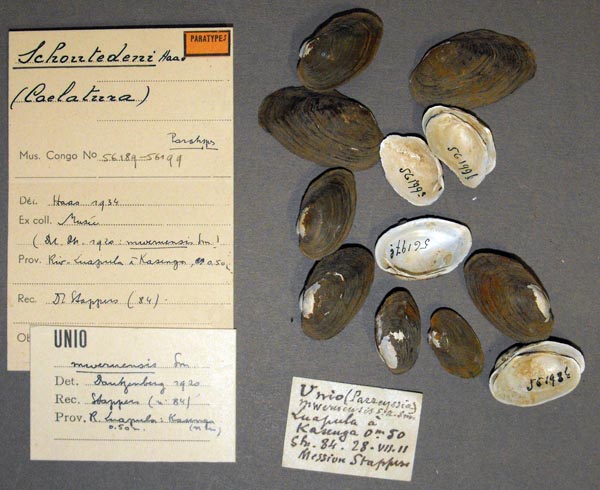 PARATYPES
Schoutedeni Haas
(Caelatura)
Paratypes
Mus. Congo No 56189-56199
Dét. Haas 1934
Ex coll. Musée
(Dt. Db. 1920: mweruensis Sm)
Prov. Riv. Luapula à Kasenga, 0.50m
Rec. Dr Stappers (84)
UNIO
mweruensis Sm
Det. Dautzenberg 1920
Rec. Stappers (n: 84)
Prov. R. Luapula: Kasenga
0.50m.
Unio (Parreysia)
mweruensis Sm.
Luapula à
Kasenga 0m50
Stn. 84. 28-VII-11
Mission Stappers